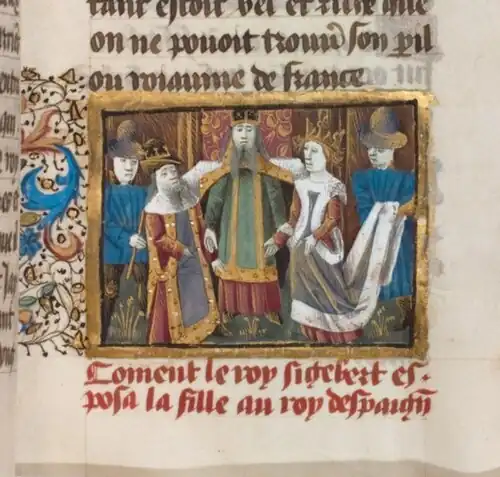 tant estoit bel et riche que
on ne pouoit trouuer son pil
ou roiaume de france
Coment le roy sigebert es-
posa la fille au roy despaign